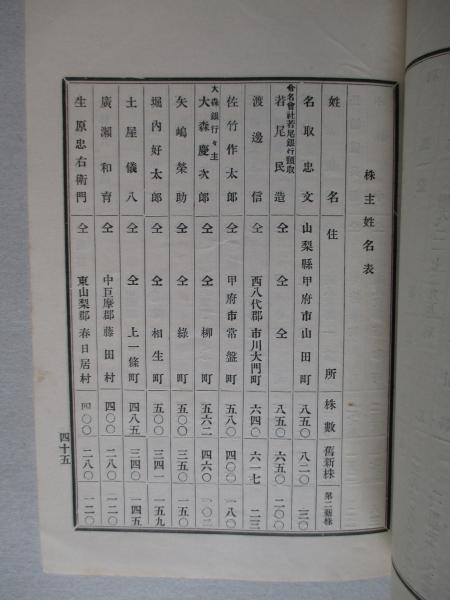 株主姓名表
姓名 住所 株數 舊新株 第二新株
名取忠文 山梨縣甲府市山田町 八五〇 八二〇 三〇
合名會社若尾銀行頭取
若尾民造 仝 仝 仝 八五〇 六五〇 二〇〇
渡邊信 仝 西八代郡市川大門町 六四〇 六一七 二三
佐竹作太郎 仝 甲府市常盤町 五八〇 四〇〇 一八〇
大森銀行々主
大森慶次郎 仝 仝 柳町 五六二 四六〇 一〇二
矢嶋榮助 仝 仝 綠町 五〇〇 三五〇 一五〇
堀內好太郎 仝 仝 相生町 五〇〇 三四一 一五九
土屋儀八 仝 仝 上一條町 四八五 三四〇 一四五
廣瀨和育 仝 中巨摩郡藤田村 四〇〇 二八〇 一二〇
生原忠右衛門 仝 東山梨郡春日居村 四〇〇 二八〇 一二〇
四十五